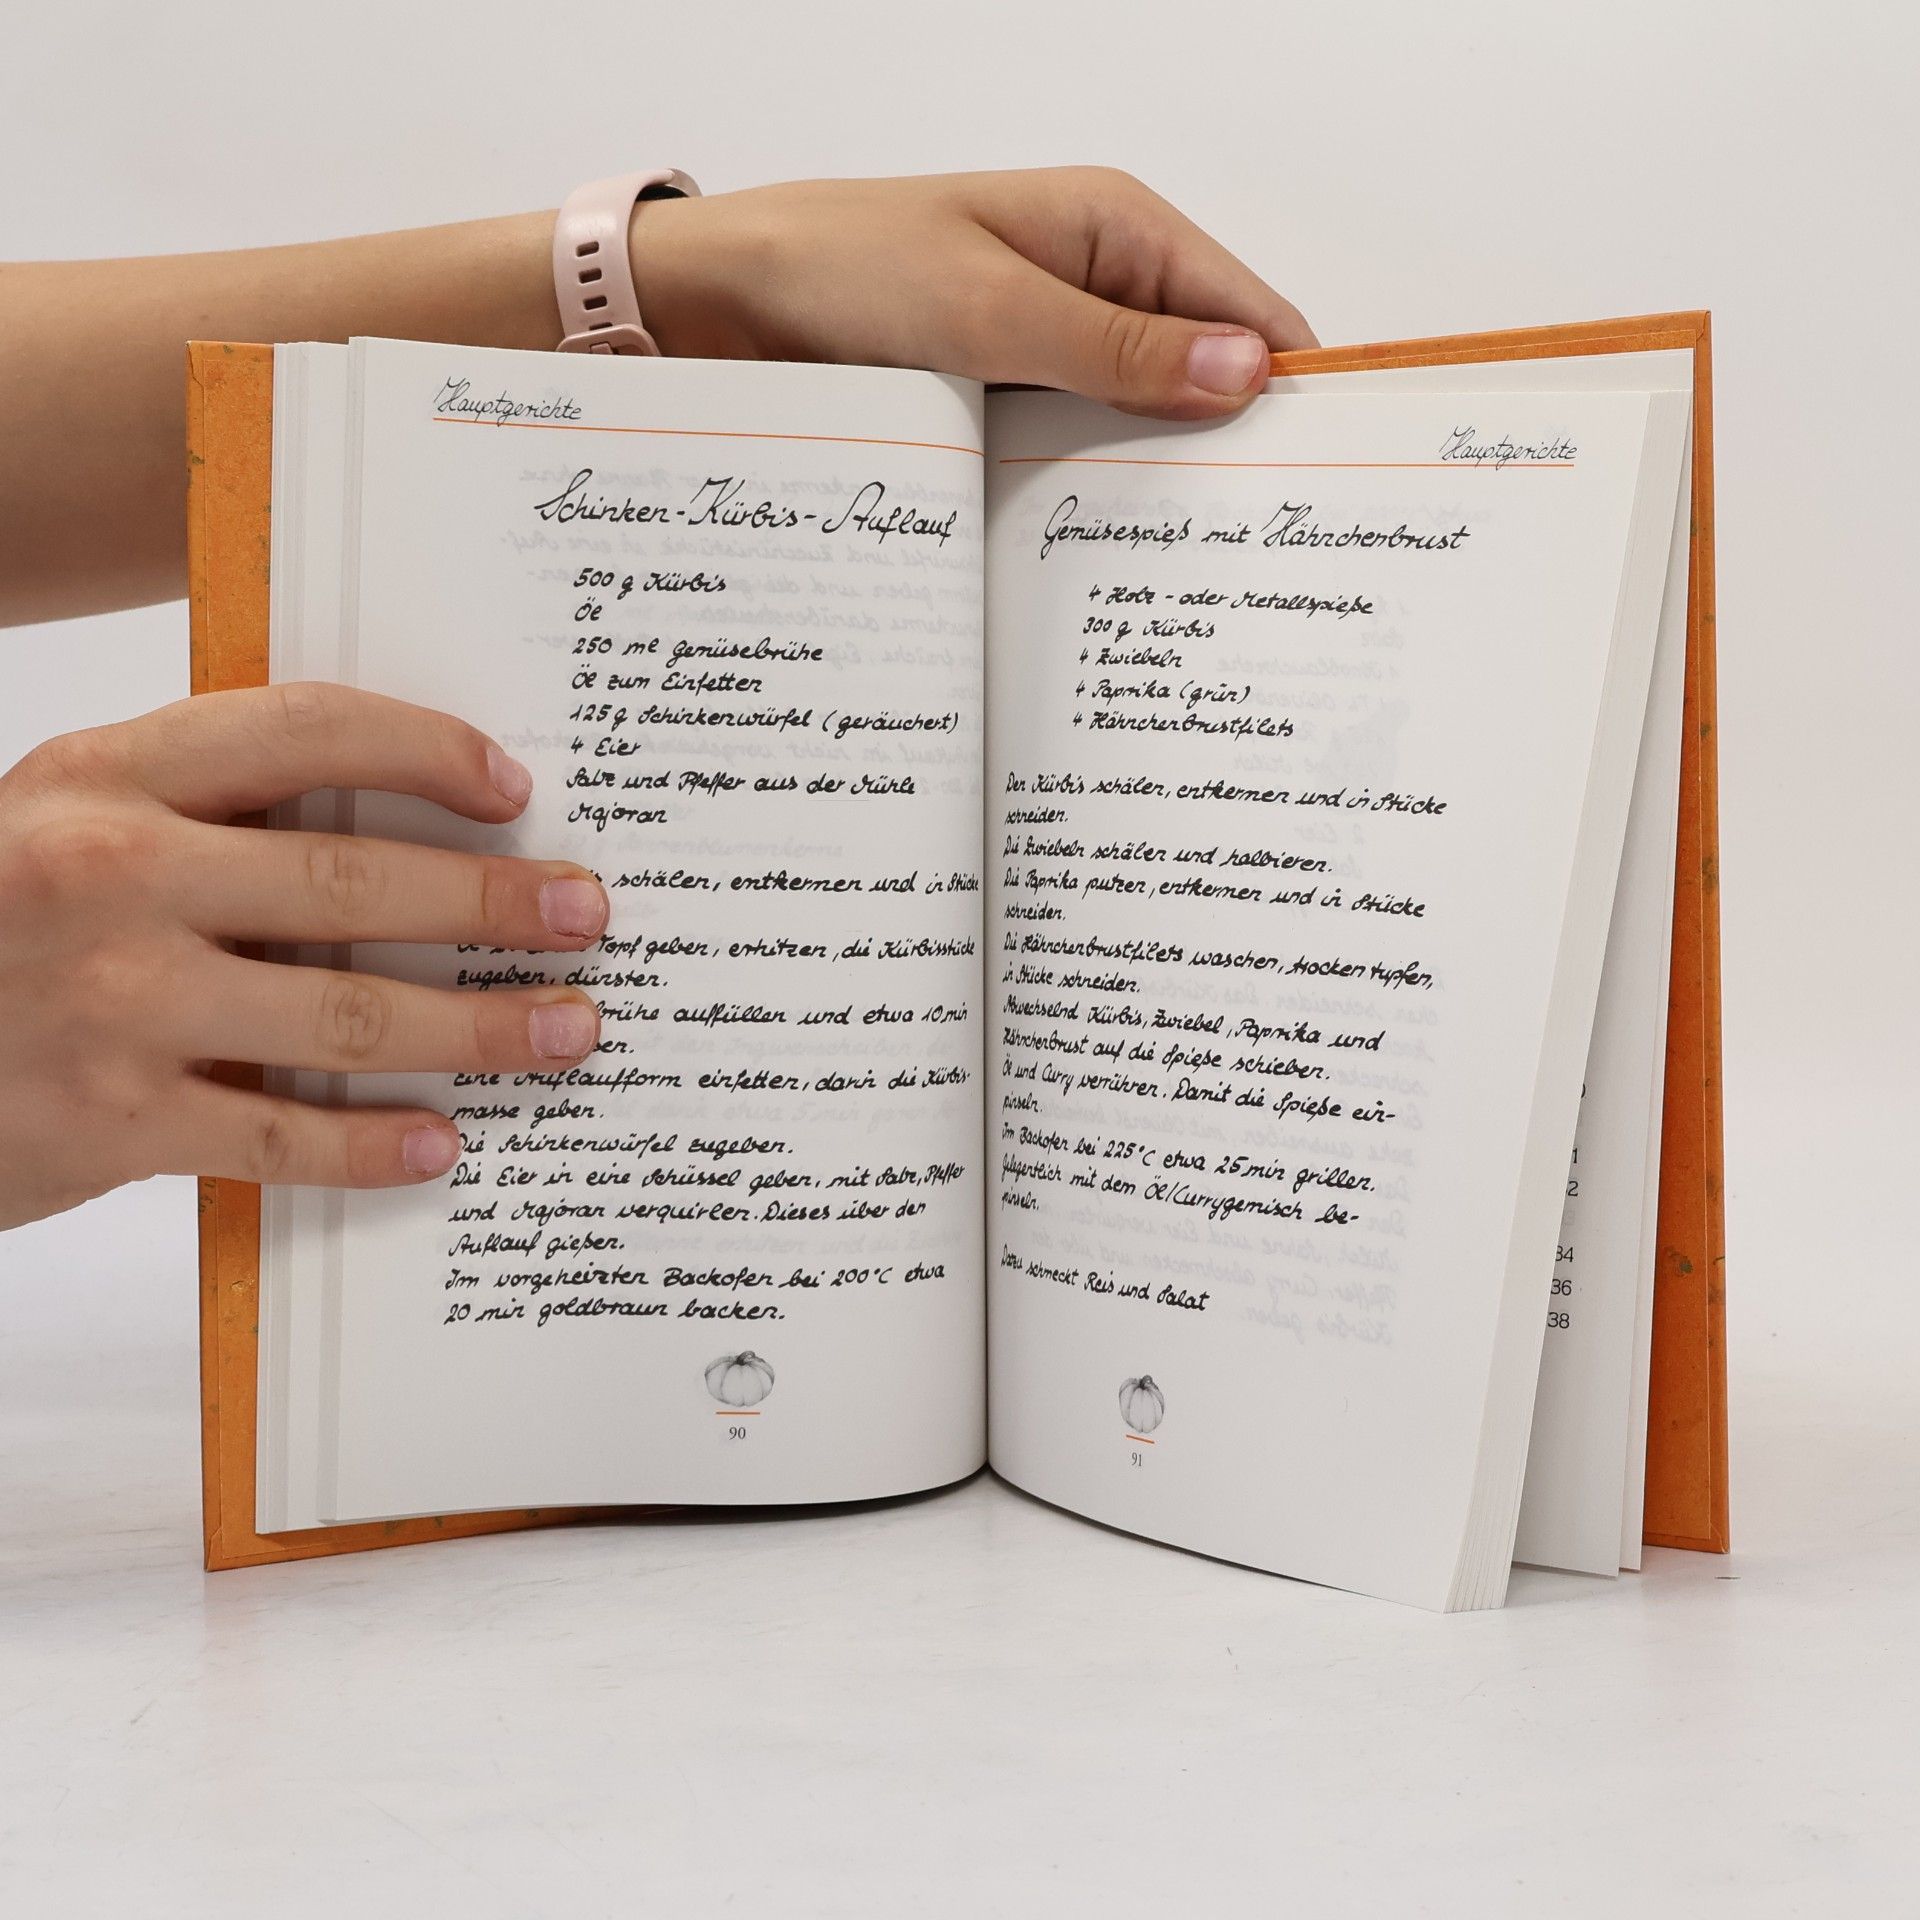 Hauptgerichte
Schinken-Kürbis-Auflauf
500 g Kürbis
Öl
250 ml Gemüsebrühe
Öl zum Einfetten
125 g Schinkenwürfel (geräuchert)
4 Eier
Salz und Pfeffer aus der Mühle
Majoran
schälen, entkernen und in Stücke
Topf geben, erhitzen, die Kürbisstücke
zugeben, dünsten.
brühe auffüllen und etwa 10 min
Eine Auflaufform einfetten, darin die Kürbis-
masse geben.
Die Schinkenwürfel zugeben.
Die Eier in eine Schüssel geben, mit Salz, Pfeffer
und Majoran verquirlen. Dieses über den
Auflauf gießen.
Im vorgeheizten Backofen bei 200°C etwa
20 min goldbraun backen.
90
Hauptgerichte
Gemüsespieß mit Hähnchenbrust
4 Holz- oder Metallspieße
300 g Kürbis
4 Zwiebeln
4 Paprika (grün)
4 Hähnchenbrustfilets
Den Kürbis schälen, entkernen und in Stücke
schneiden.
Die Zwiebeln schälen und halbieren.
Die Paprika putzen, entkernen und in Stücke
schneiden.
Die Hähnchenbrustfilets waschen, trocken tupfen,
in Stücke schneiden.
Abwechselnd Kürbis, Zwiebel, Paprika und
Hähnchenbrust auf die Spieße schieben.
Öl und Curry verrühren. Damit die Spieße ein-
pinseln.
Im Backofen bei 225°C etwa 25 min grillen.
Gelegentlich mit dem Öl/Currygemisch be-
pinseln.
Dazu schmeckt Reis und Salat
91
34
36
38